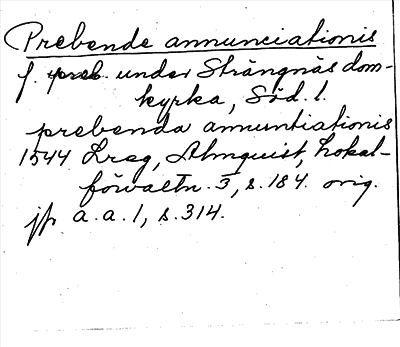 Prebende annunciationis
f. preb. under Strängnäs dom-
kyrka, Söd. l.
prebenda annuntiationis
1544 Lreg, Almquist, Lokal-
förvaltn. 3, s. 184. orig.
jfr a. a. 1, s. 314.